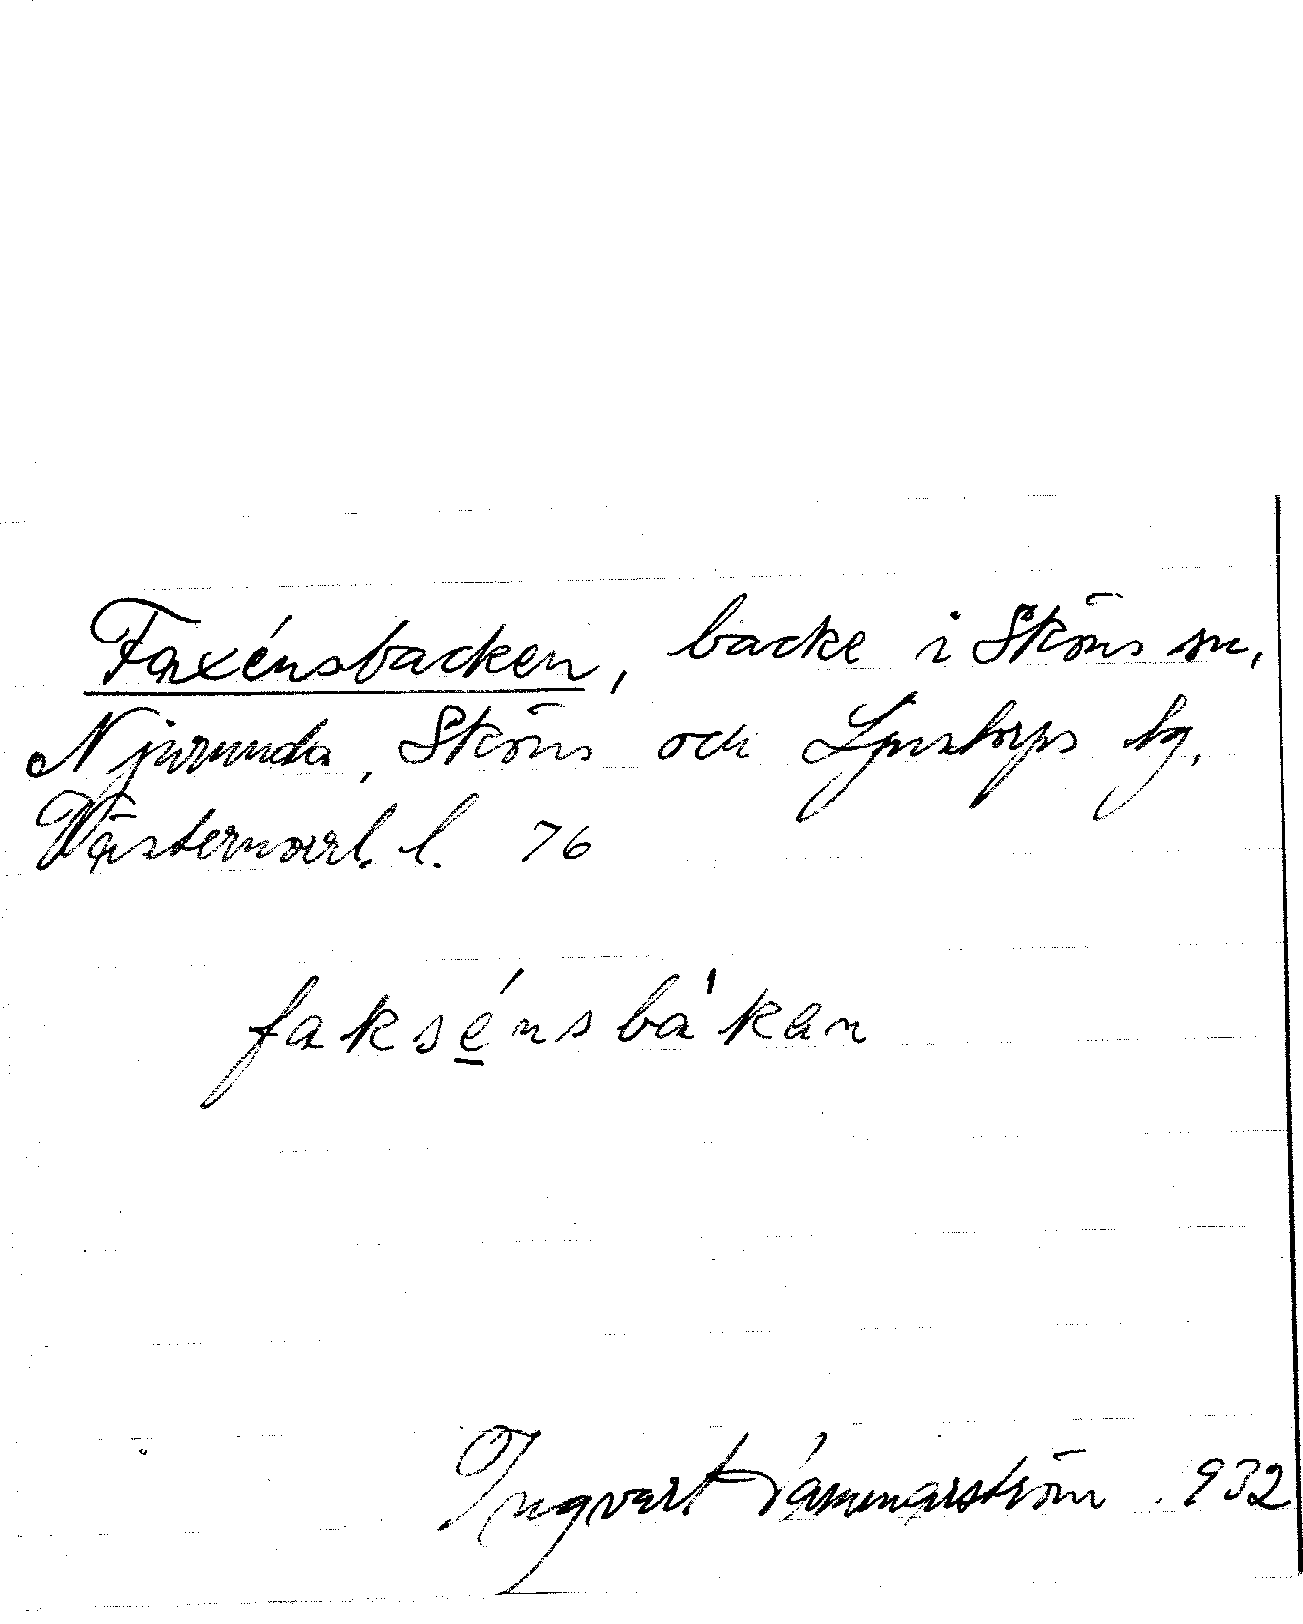 Faxénsbacken, backe i Sköns sn,
Njurunda, Sköns och Ljustorps tg,
Västernorrl. l. 76
faksénsbá'kan
Ingvart 932